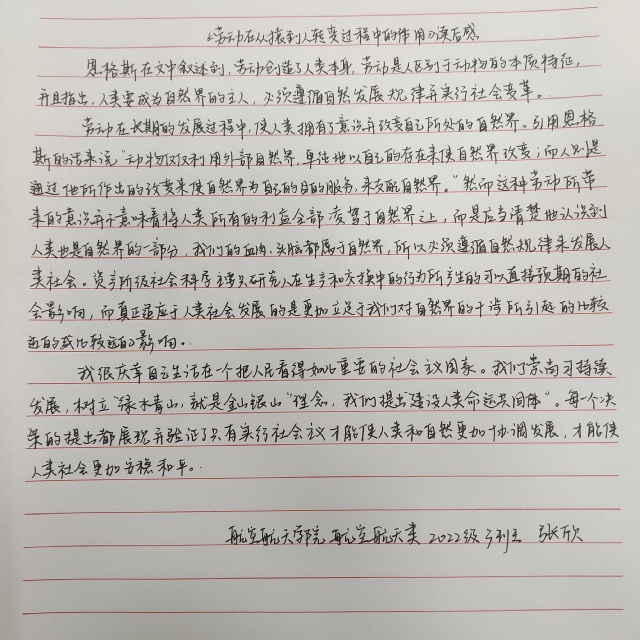 《劳动在从猿到人转变过程中的作用》读后感
恩格斯在文中叙述到,劳动创造了人类本身,劳动是人区别于动物的本质特征,
并且指出,人类要成为自然界的主人,必须遵循自然发展规律并实行社会变革。
劳动在长期的发展过程中,使人类拥有了意识并改变自己所处的自然界。引用恩格
斯的话来说“动物仅仅利用外部自然界,单纯地以自己的存在来使自然界改变;而人则是
通过他所作出的改变来使自然界为自己的目的服务,来支配自然界。”然而这种劳动所带
来的意识并不意味着将人类所有的利益全部凌驾于自然界之上,而是应当清楚地认识到
人类也是自然界的一部分,我们的血肉、头脑都属于自然界,所以必须遵循自然规律来发展人
类社会。资产阶级社会科学主要只研究人在生产和交换中的行为所产生的可以直接预期的社
会影响,而真正适应于人类社会发展的是更加立足于我们对自然界的干涉所引起的比较
近的或比较远的影响。
我很庆幸自己生活在一个把人民看得如此重要的社会主义国家。我们崇尚可持续
发展,树立“绿水青山,就是金山银山”理念,我们提出“建设人类命运共同体”。每一个决
策的提出都展现并验证了只有实行社会主义才能使人类和自然更加协调发展,才能使
人类社会更加安稳和平。
航空航天学院 航空航天类 2022级 张欣